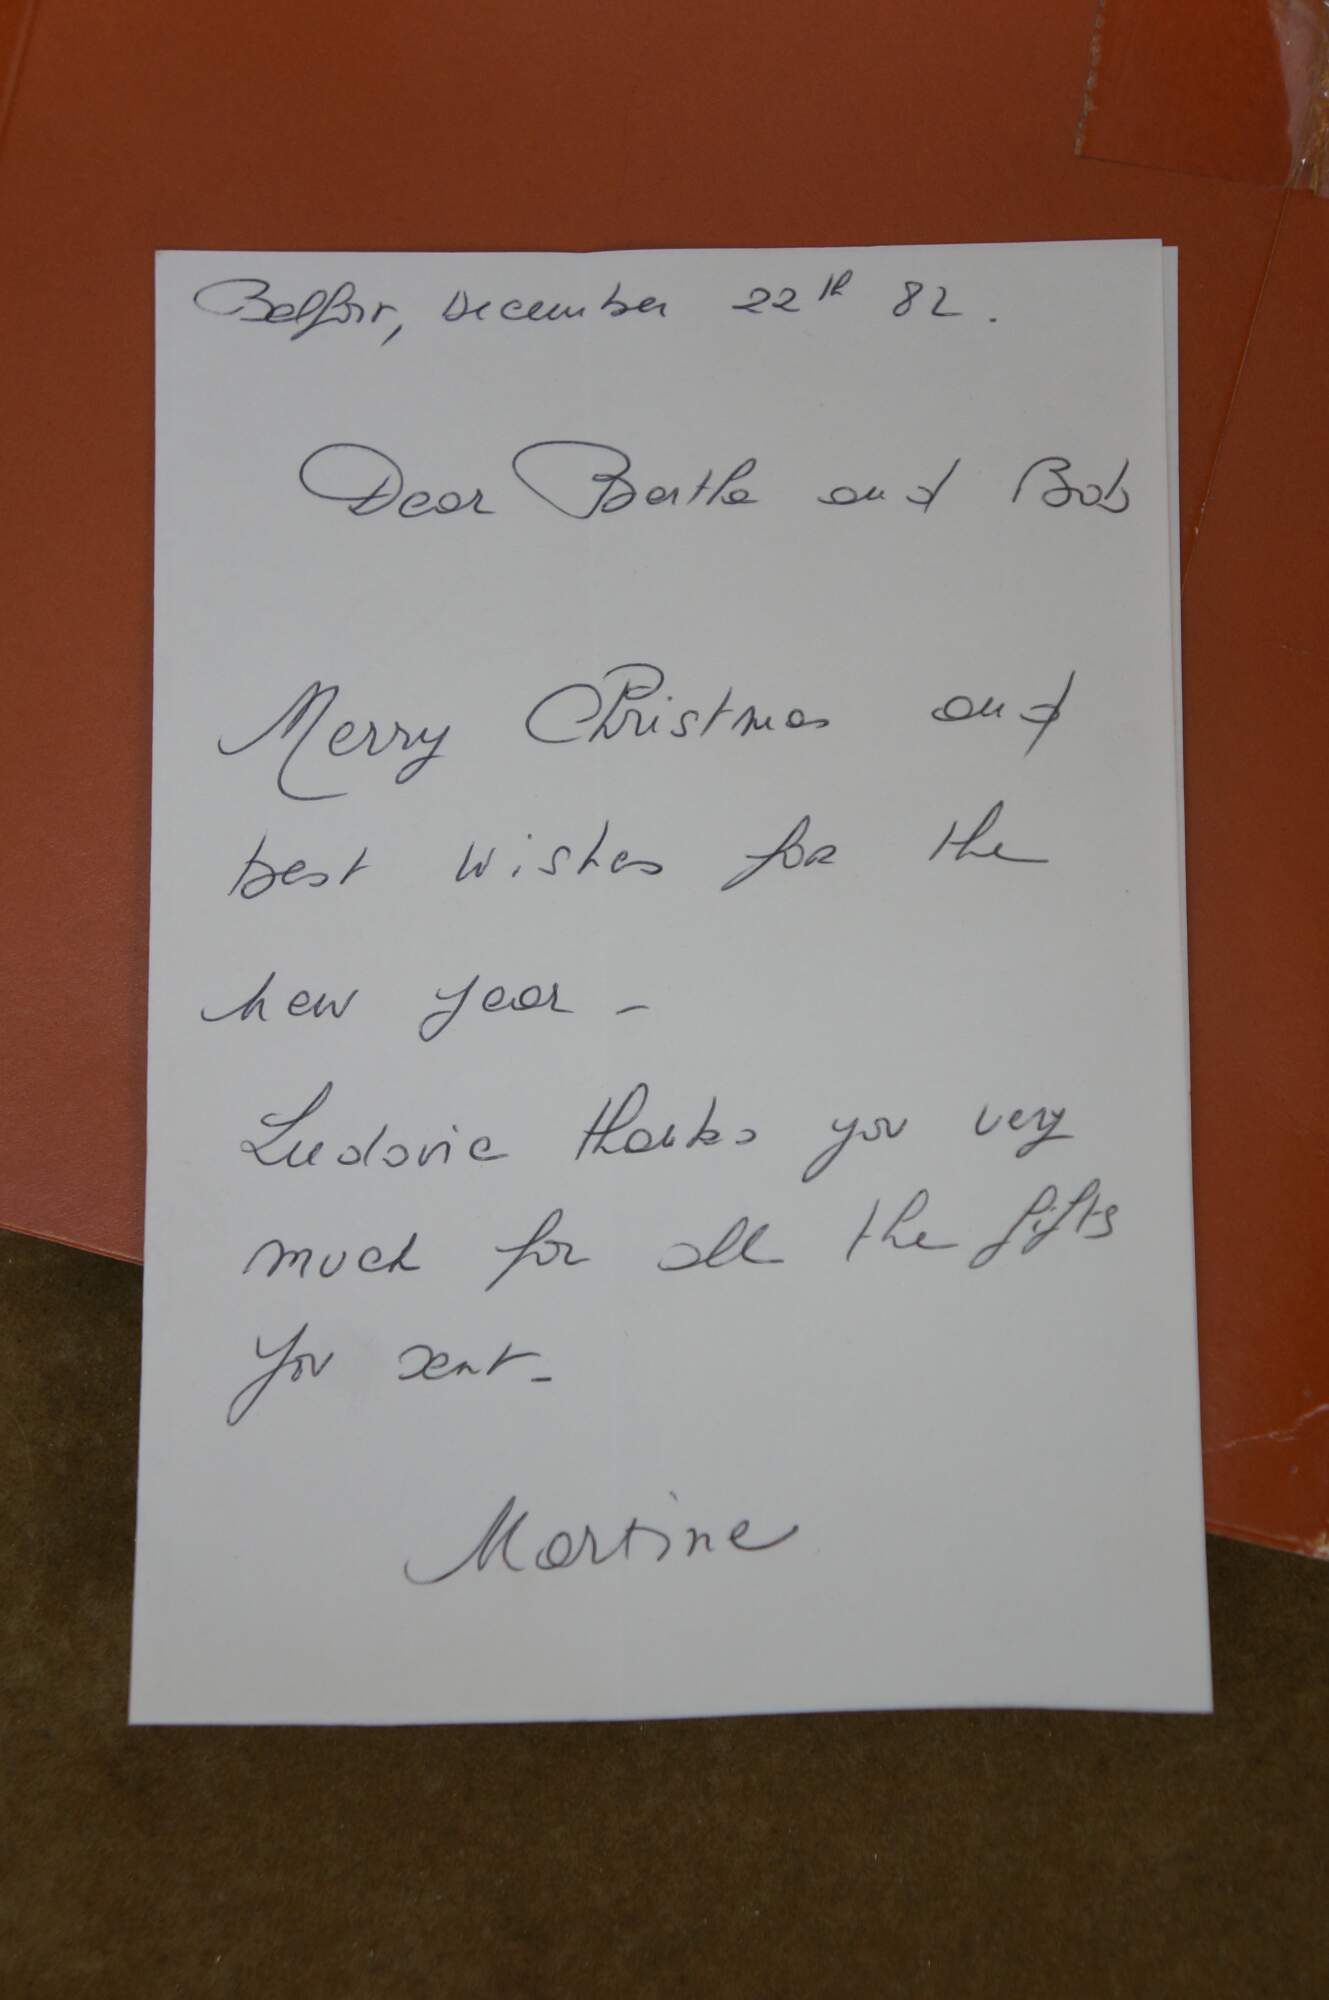 Belfort, December 22th 82.
Dear Berthe and Bob
Merry Christmas and
best wishes for the
new year -
Ludovic thanks you very
much for all the gifts
you sent -
Martine